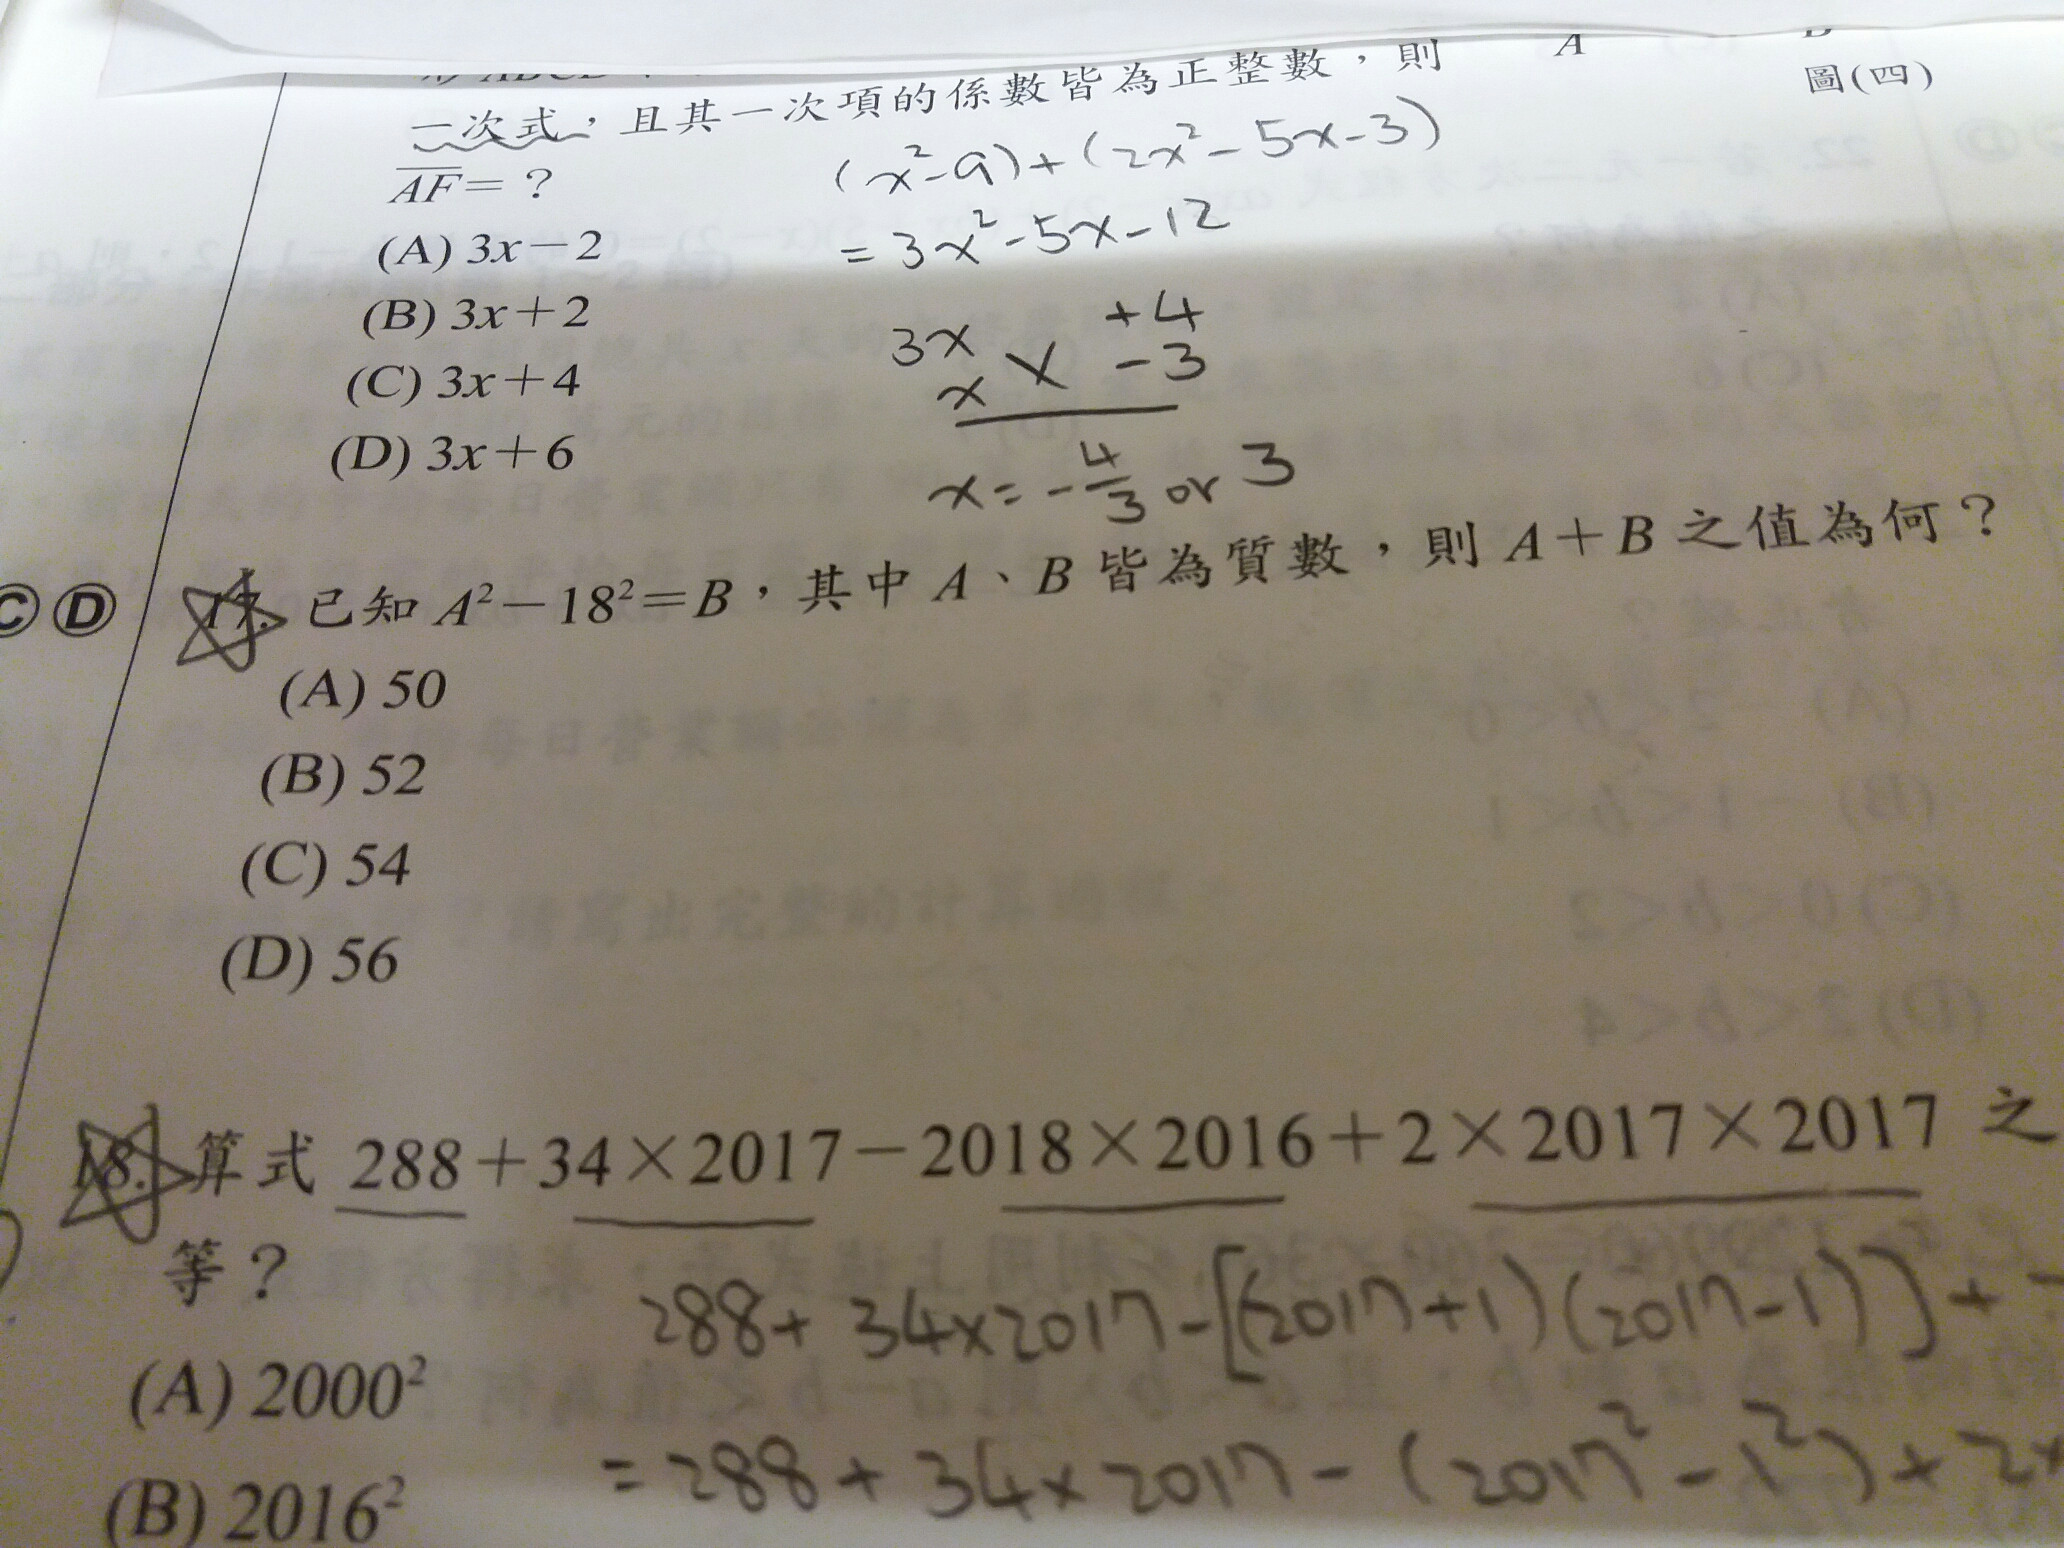 一次式，且其一次項的係數皆為正整數，則
A
圖(四)
AF=？
(x²-9)+(2x²-5x-3)
=3x²-5x-12
(A) 3x－2
(B) 3x＋2
(C) 3x＋4
(D) 3x＋6
3x +4
x X -3
x=-4/3 or 3
C D
17. 已知 A²－18²=B，其中 A、B 皆為質數，則 A＋B 之值為何？
(A) 50
(B) 52
(C) 54
(D) 56
18. 算式 288＋34×2017－2018×2016＋2×2017×2017 之
等？
288+34×2017-[(2017+1)(2017-1)]+
=288+34×2017-(2017²-1²)+2×
(A) 2000²
(B) 2016²